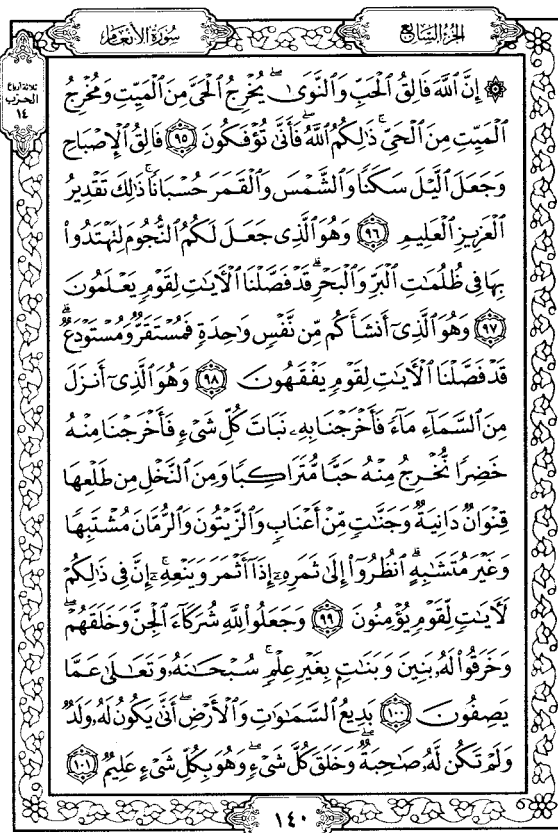 سُورَةُ الأَنْعَام
الجُزءُ السَّابِعُ
ثلاثة أرباع
الحزب
١٤
۞ إِنَّ ٱللَّهَ فَالِقُ ٱلْحَبِّ وَٱلنَّوَىٰۖ يُخْرِجُ ٱلْحَىَّ مِنَ ٱلْمَيِّتِ وَمُخْرِجُ
ٱلْمَيِّتِ مِنَ ٱلْحَىِّۚ ذَٰلِكُمُ ٱللَّهُۖ فَأَنَّىٰ تُؤْفَكُونَ ۝٩٥ فَالِقُ ٱلْإِصْبَاحِ
وَجَعَلَ ٱلَّيْلَ سَكَنًا وَٱلشَّمْسَ وَٱلْقَمَرَ حُسْبَانًاۚ ذَٰلِكَ تَقْدِيرُ
ٱلْعَزِيزِ ٱلْعَلِيمِ ۝٩٦ وَهُوَ ٱلَّذِى جَعَلَ لَكُمُ ٱلنُّجُومَ لِتَهْتَدُوا۟
بِهَا فِى ظُلُمَٰتِ ٱلْبَرِّ وَٱلْبَحْرِۗ قَدْ فَصَّلْنَا ٱلْءَايَٰتِ لِقَوْمٍ يَعْلَمُونَ
۝٩٧ وَهُوَ ٱلَّذِىٓ أَنشَأَكُم مِّن نَّفْسٍ وَٰحِدَةٍ فَمُسْتَقَرٌّ وَمُسْتَوْدَعٌۗ
قَدْ فَصَّلْنَا ٱلْءَايَٰتِ لِقَوْمٍ يَفْقَهُونَ ۝٩٨ وَهُوَ ٱلَّذِىٓ أَنزَلَ
مِنَ ٱلسَّمَآءِ مَآءً فَأَخْرَجْنَا بِهِۦ نَبَاتَ كُلِّ شَىْءٍ فَأَخْرَجْنَا مِنْهُ
خَضِرًا نُّخْرِجُ مِنْهُ حَبًّا مُّتَرَاكِبًا وَمِنَ ٱلنَّخْلِ مِن طَلْعِهَا
قِنْوَانٌ دَانِيَةٌ وَجَنَّٰتٍ مِّنْ أَعْنَابٍ وَٱلزَّيْتُونَ وَٱلرُّمَّانَ مُشْتَبِهًا
وَغَيْرَ مُتَشَٰبِهٍۗ ٱنظُرُوٓا۟ إِلَىٰ ثَمَرِهِۦٓ إِذَآ أَثْمَرَ وَيَنْعِهِۦٓۚ إِنَّ فِى ذَٰلِكُمْ
لَءَايَٰتٍ لِّقَوْمٍ يُؤْمِنُونَ ۝٩٩ وَجَعَلُوا۟ لِلَّهِ شُرَكَآءَ ٱلْجِنَّ وَخَلَقَهُمْۖ
وَخَرَقُوا۟ لَهُۥ بَنِينَ وَبَنَٰتٍۭ بِغَيْرِ عِلْمٍۚ سُبْحَٰنَهُۥ وَتَعَٰلَىٰ عَمَّا
يَصِفُونَ ۝١٠٠ بَدِيعُ ٱلسَّمَٰوَٰتِ وَٱلْأَرْضِۖ أَنَّىٰ يَكُونُ لَهُۥ وَلَدٌ
وَلَمْ تَكُن لَّهُۥ صَٰحِبَةٌۖ وَخَلَقَ كُلَّ شَىْءٍۖ وَهُوَ بِكُلِّ شَىْءٍ عَلِيمٌ ۝١٠١
١٤٠